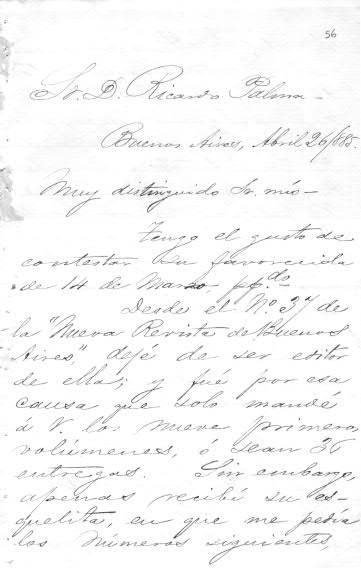 56
Sr. D. Ricardo Palma-
Buenos Aires, Abril 26/885.
Muy distinguido Sr. mío-
Tengo el gusto de
contestar su favorecida
de 14 de Marzo, ppdo
Desde el No. 37 de
la "Nueva Revista de Buenos
Aires" dejé de ser editor
de ella; y fué por esa
causa que solo mandé
á V. los nueve primeros
volúmenes, ó sean 36
entregas. Sin embargo,
apenas recibí su es-
quelita, en que me pedía
los números siguientes,